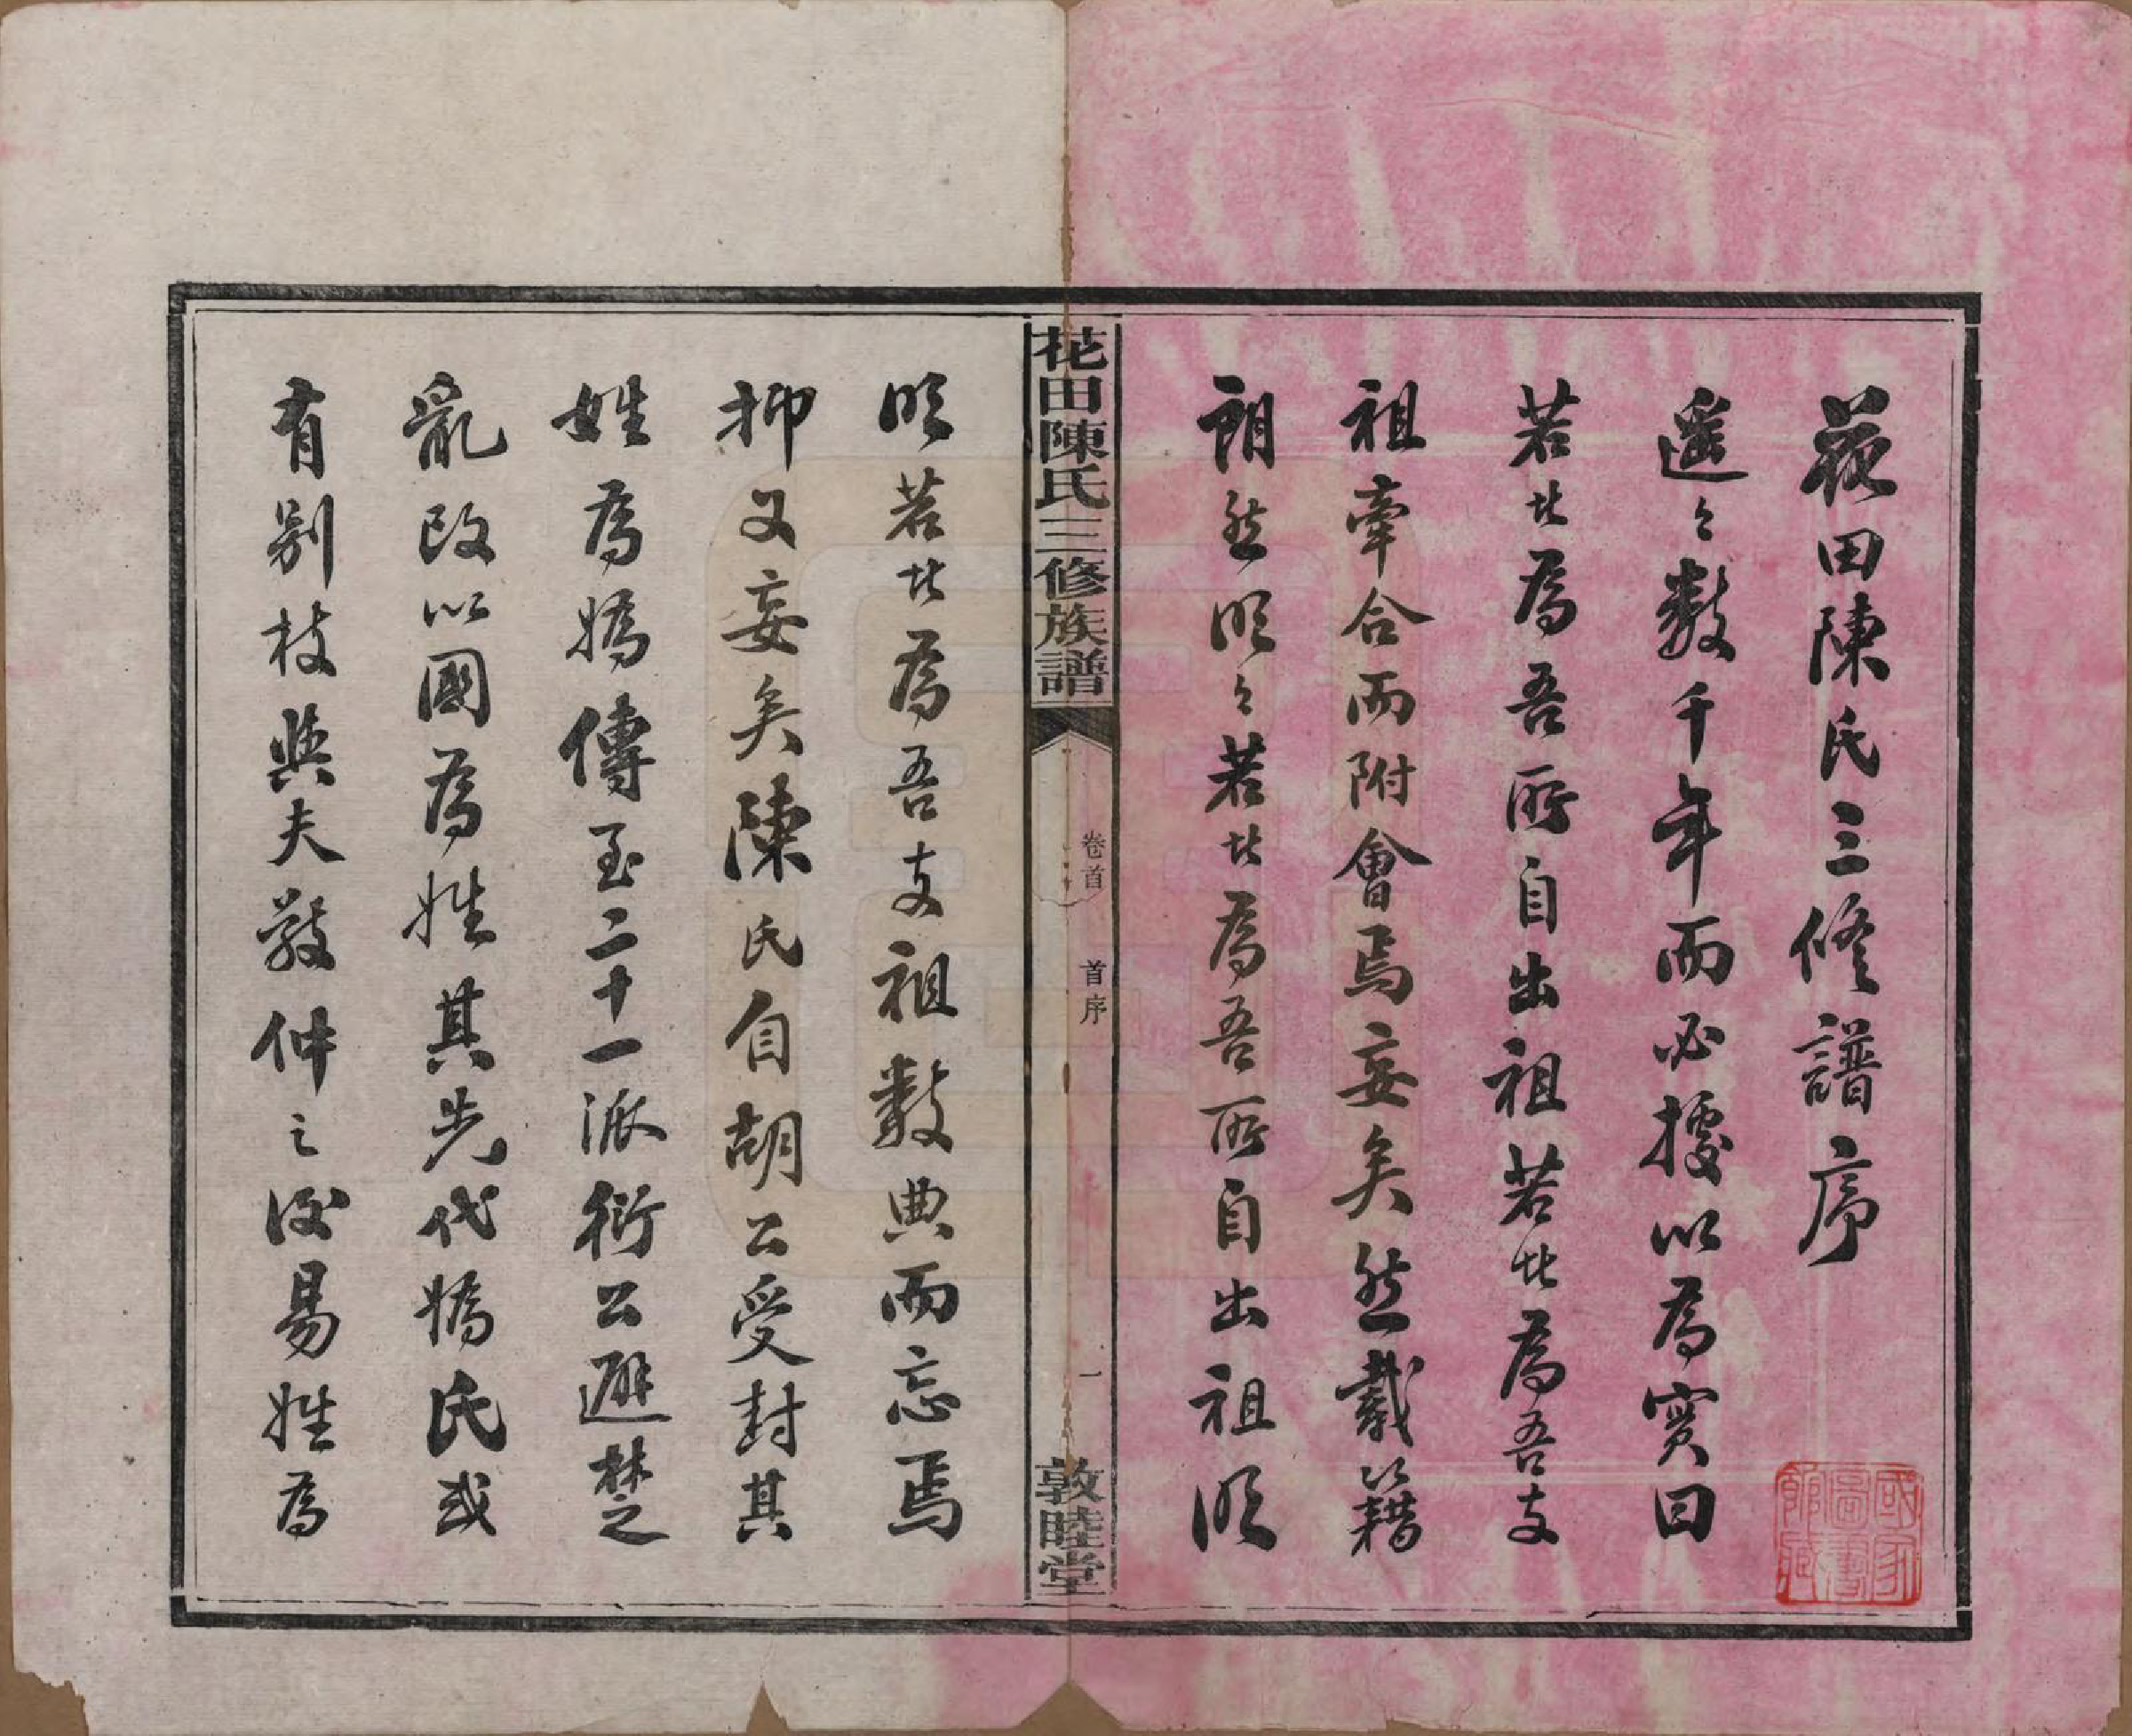 花田陳氏三修譜序
遥々數千年而必據以為實曰
若此為吾所自出祖若此為吾支
祖牽合而附會焉妄矣然載籍
朗然明々若此為吾所自出祖明
花田陳氏三修族譜
卷首
首序
一
敦睦堂
明若此為吾支祖數典而忘焉
抑又妄矣陳氏自胡公受封其
姓為嬀傳至二十一派衍公避楚之
亂改以國為姓其先代嬀氏或
有别枝與夫敬仲之後易姓為
國家圖書館藏